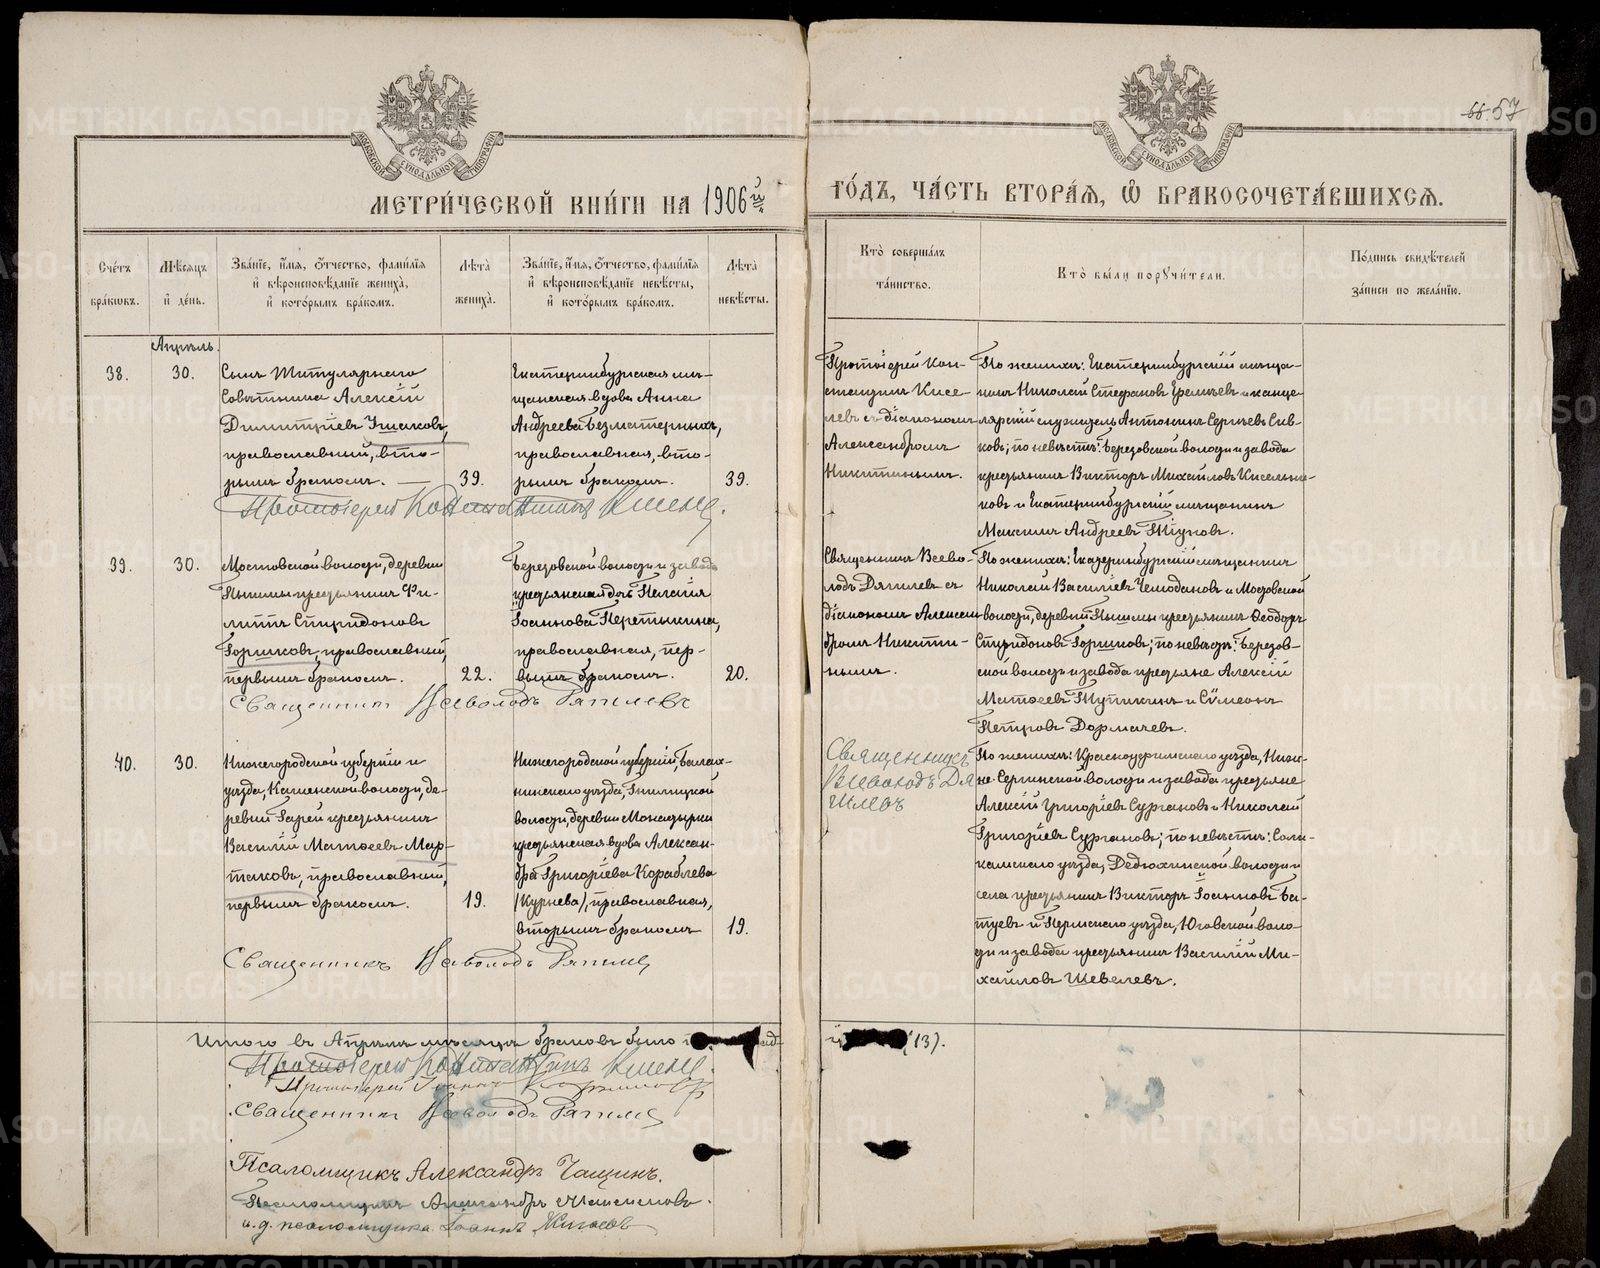 МЕТРИ́ЧЕСКОЙ КНИ́ГИ НА 1906й
ГО́ДЪ, ЧА́СТЬ ВТОРА́Я, Ѡ҆ БРАКОСОЧЕТА́ВШИХСЯ.
66. 57
МОСКОВСКОЙ СѴНОДАЛЬНОЙ ТИПОГРАФІИ
МОСКОВСКОЙ СѴНОДАЛЬНОЙ ТИПОГРАФІИ
Сче́тъ бра́кωвъ.
Мѣ́сяцъ и҆ де́нь.
Зва́нїе, и҆́мя, ѻ҆́тчество, фами́лїя и҆ вѣроисповѣ́данїе жениха̀, и҆ кото́рымъ бра́комъ.
Лѣ́та жениха̀.
Зва́нїе, и҆́мя, ѻ҆́тчество, фами́лїя и҆ вѣроисповѣ́данїе невѣ́сты, и҆ кото́рымъ бра́комъ.
Лѣ́та невѣ́сты.
Кто̀ соверша́лъ та́инство.
Кто̀ бы́ли порꙋчи́тели.
По́дпись свидѣ́телей за́писи по жела́нїю.
Апрѣль.
38.
30.
Сынъ Титулярнаго
Совѣтника Алексій
Димитріевъ Ушаковъ,
православный, вто-
рымъ бракомъ.
39.
Екатеринбургская мѣ-
щанская вдова Анна
Андреева Безматерныхъ,
православная, вто-
рымъ бракомъ.
39.
Протоіерей Кон-
стантинъ Кисе-
левъ съ діакономъ
Александромъ
Никитинымъ.
По женихѣ: Екатеринбургскій мѣща-
нинъ Николай Стефановъ и канце-
лярскій служитель Антонинъ Сергѣевъ Сив-
ковъ; по невѣстѣ: Березовской волости и завода
крестьянинъ Викторъ Михайловъ Кисельни-
ковъ и Екатеринбургскій мѣщанинъ
Максимъ Андреевъ Тіуновъ.
Протоіерей Константинъ
39.
30.
Мостовской волости, деревни
Пышмы крестьянинъ Фи-
липпъ Спиридоновъ
Горшковъ, православный,
первымъ бракомъ.
22.
Березовской волости и завода
крестьянская дочь Пелагія
Іосифова Перетыкина,
православная, пер-
вымъ бракомъ.
20.
Священникъ Всево-
лодъ Дягилевъ съ
діакономъ Алексан-
дромъ Никити-
нымъ.
По женихѣ: Екатеринбургскій мѣщанинъ
Николай Василіевъ Чемодановъ и Мостовской
волости, деревни Пышмы крестьянинъ Ѳеодоръ
Спиридоновъ Горшковъ; по невѣстѣ: Березов-
ской волости и завода крестьяне Алексій
Матѳеевъ и Сѵмеонъ
Петровъ Дормачевъ.
Священникъ Всеволодъ Дягилевъ
40.
30.
Нижегородской губерніи и
уѣзда, волости, де-
ревни крестьянинъ
Василій Матѳеевъ Мар-
таковъ, православный,
первымъ бракомъ.
19.
Нижегородской губерніи, Балах-
нинскаго уѣзда,
волости, деревни
крестьянская вдова Алексан-
дра Григоріева Кораблева
(Курнева), православная,
вторымъ бракомъ
19.
Священникъ
Всеволодъ Дя-
гилевъ
По женихѣ: Красноуфимскаго уѣзда, Ниж-
не-Сергинской волости и завода крестьяне
Алексій Григоріевъ Сургановъ и Николай
Григоріевъ Сургановъ; по невѣстѣ: Соли-
камскаго уѣзда, Дедюхинской волости и
села крестьянинъ Викторъ Іосифовъ Ба-
туевъ и Пермскаго уѣзда, Юговской воло-
сти и завода крестьянинъ Василій Ми-
хайловъ Шевелевъ.
Священникъ Всеволодъ Дягилевъ
Итого въ Апрѣлѣ мѣсяцѣ браковъ было (13).
Протоіерей Константинъ
Протоіерей Іоаннъ
Священникъ Всеволодъ Дягилевъ
Псаломщикъ Александръ Чащинъ.
Псаломщикъ Александръ
и. д. псаломщика Іоаннъ
METRIKI.GASO-URAL.RU